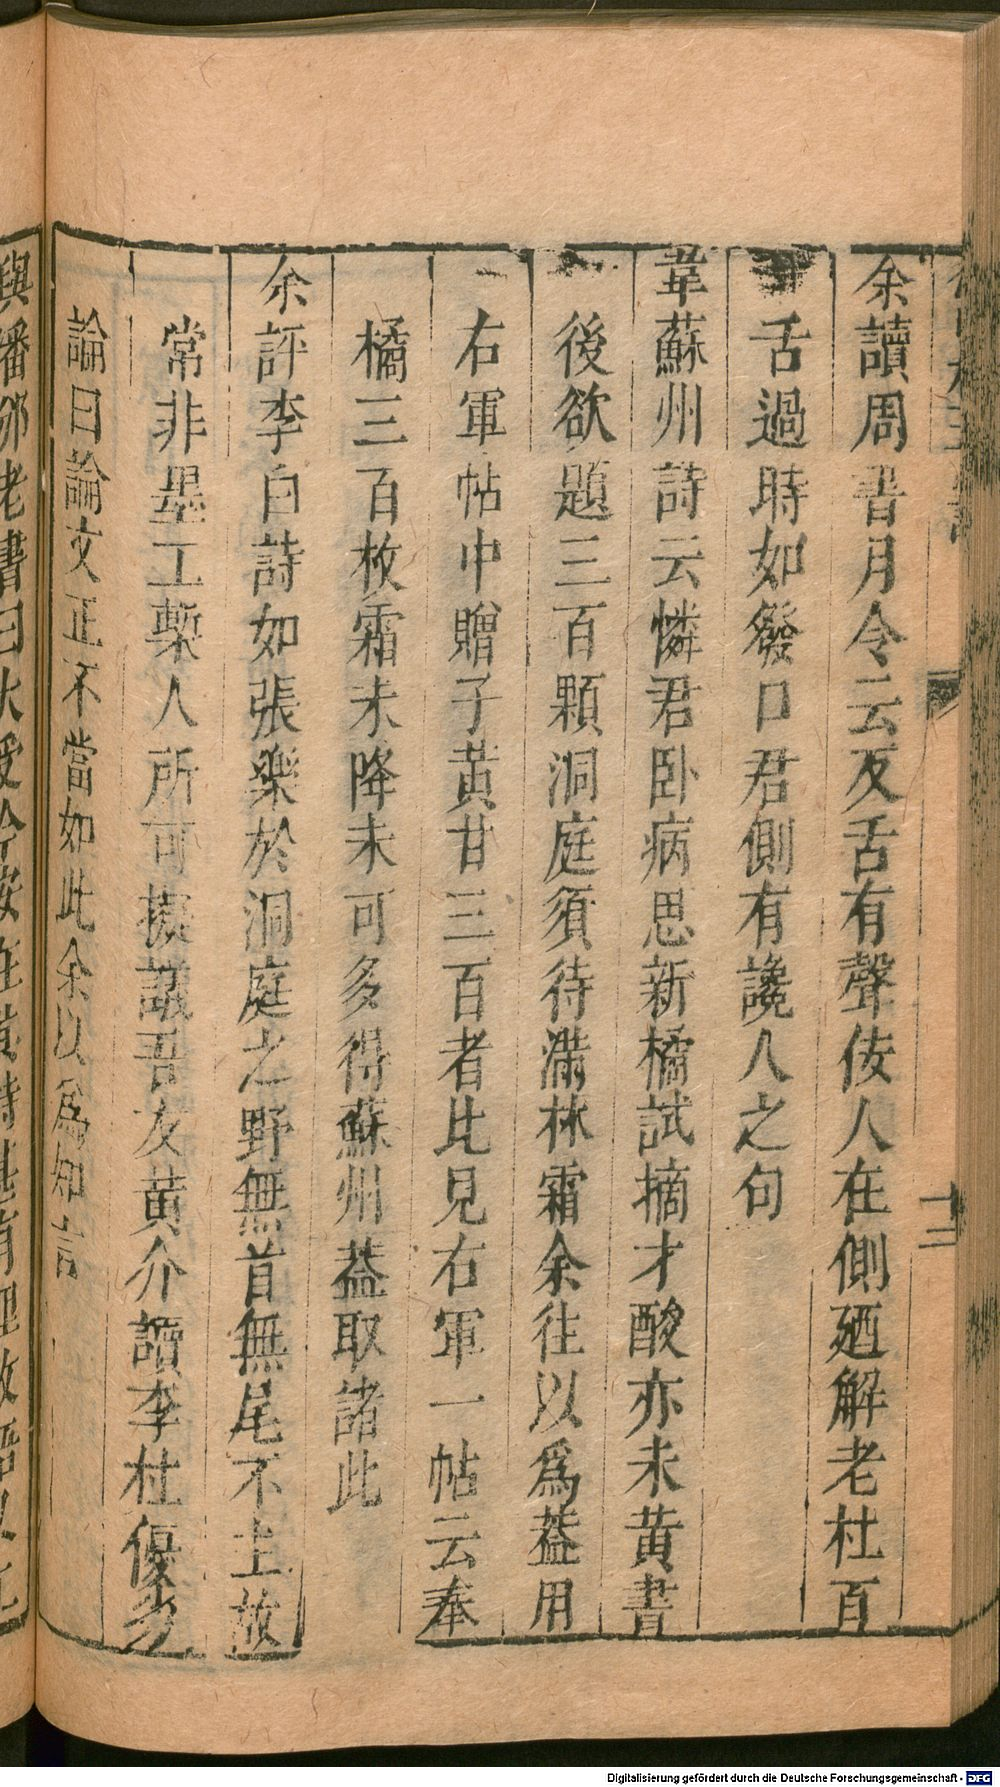 余讀周書月令云反舌有聲佞人在側廼解老杜百
舌過時如發口君側有讒人之句
韋蘇州詩云憐君卧病思新橘試摘才酸亦未黃書
後欲題三百顆洞庭須待滿林霜余往以爲葢用
右軍帖中贈子黃甘三百者比見右軍一帖云奉
橘三百枚霜未降未可多得蘇州葢取諸此
余評李白詩如張樂於洞庭之野無首無尾不主故
常非墨工槧人所可擬議吾友黃介讀李杜優劣
論曰論文正不當如此余以爲知言
與潘邠老書曰大受今安在
十二
Digitalisierung gefördert durch die Deutsche Forschungsgemeinschaft - DFG